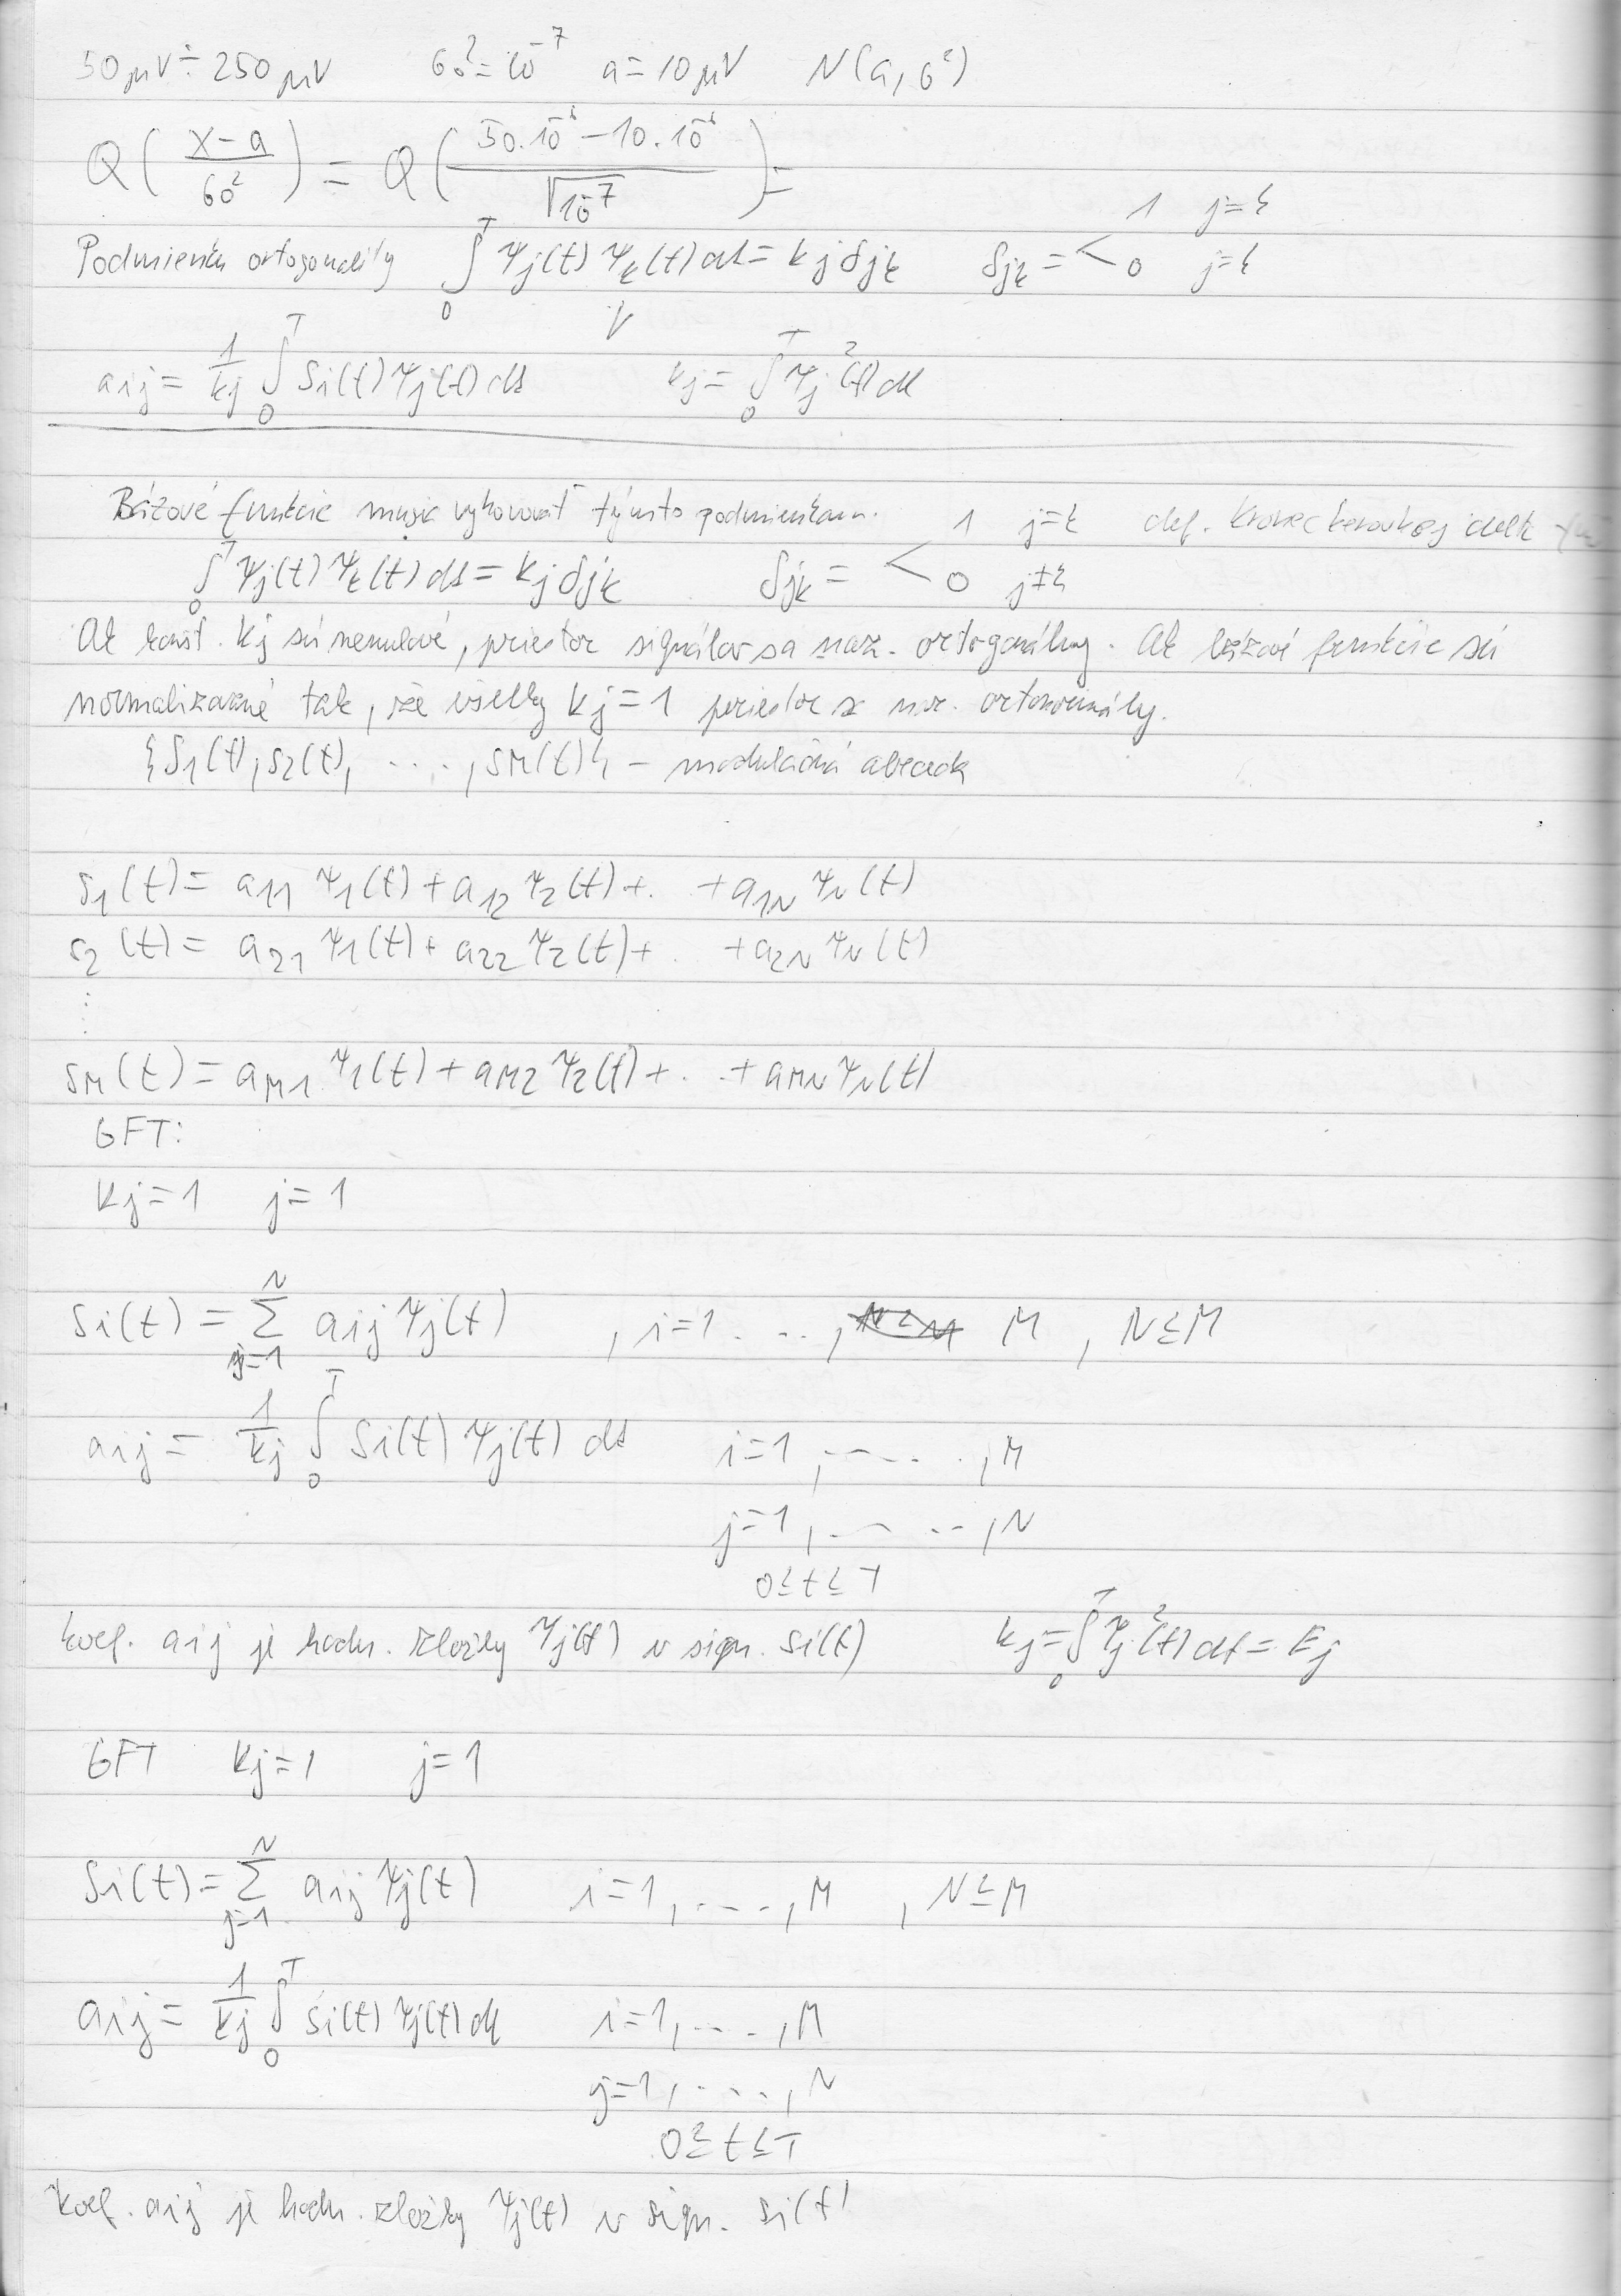 50μV ÷ 250μV   σ0² = 10^-7   a = 10μV   N(a, σ²)
Q((x-a)/σ0²) = Q((50.10^-6 - 10.10^-6)/√10^-7) =
Podmienka ortogonality ∫0^T ψj(t) ψk(t) dt = kj δjk   δjk = < 1 j=k, 0 j=k
aij = 1/kj ∫0^T si(t) ψj(t) dt   kj = ∫0^T ψj²(t) dt
Bázové funkcie musia vyhovovať týmto podmienkam.
∫0^T ψj(t) ψk(t) dt = kj δjk   δjk = < 1 j=k, 0 j≠k   def. Kroneckerovkej delta
Ak konšt. kj sú nenulové, priestor signálov sa naz. ortogonálny. Ak bázové funkcie sú
normalizované tak, že všetky kj = 1 priestor sa naz. ortonormálny.
{s1(t), s2(t), ...., sM(t)} - modulačná abeceda
s1(t) = a11 ψ1(t) + a12 ψ2(t) + .. + a1N ψN(t)
s2(t) = a21 ψ1(t) + a22 ψ2(t) + .. + a2N ψN(t)
⋮
sM(t) = aM1 ψ1(t) + aM2 ψ2(t) + .. + aMN ψN(t)
GFT:
kj = 1   j = 1
si(t) = Σ j=1^N aij ψj(t)   , i=1 ..., M , N≤M
aij = 1/kj ∫0^T si(t) ψj(t) dt   i=1,....,M
j=1,....,N
0≤t≤T
koef. aij je hodn. zložky ψj(t) v sign. si(t)   kj = ∫0^T ψj²(t) dt = Ej
GFT   kj = 1   j = 1
si(t) = Σ j=1^N aij ψj(t)   i=1,....,M , N≤M
aij = 1/kj ∫0^T si(t) ψj(t) dt   i=1,...,M
j=1,....,N
0≤t≤T
koef. aij je hodn. zložky ψj(t) v sign. si(t)